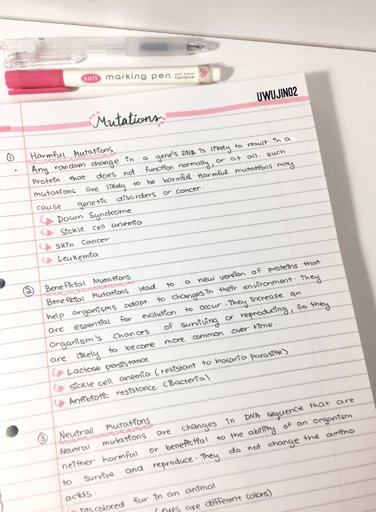 soft marking pen
UWUJIN02
Mutations
① Harmful Mutations
Any random change in a gene's DNA is likely to result in a
protein that does not function normally, or at all. Such
mutations are likely to be harmful. Harmful mutations may
cause genetic disorders or cancer.
Down Syndrome
Sickle cell anemia
Skin Cancer
Leukemia
② Beneficial Mutations
Beneficial Mutations lead to a new version of proteins that
help organisms adapt to changes in their environment. They
are essential for evolution to occur. They increase an
organism's chances of surviving or reproducing, so they
are likely to become more common over time.
Lactose persistance
Sickle cell anemia (resistant to malaria parasite)
Antibiotic resistance (Bacteria)
③ Neutral Mutations
Neutral mutations are changes in DNA sequence that are
neither harmful or beneficial to the ability of an organism
to survive and reproduce. They do not change the amino
acids.
Discolored fur in an animal
(eyes are different colors)